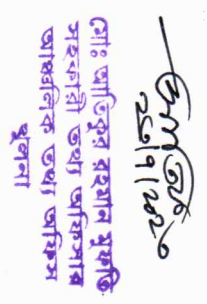 ২৬/৭/২০২০
মোঃ আতিকুর রহমান মুফতি
সহকারী তথ্য অফিসার
আঞ্চলিক তথ্য অফিস
খুলনা